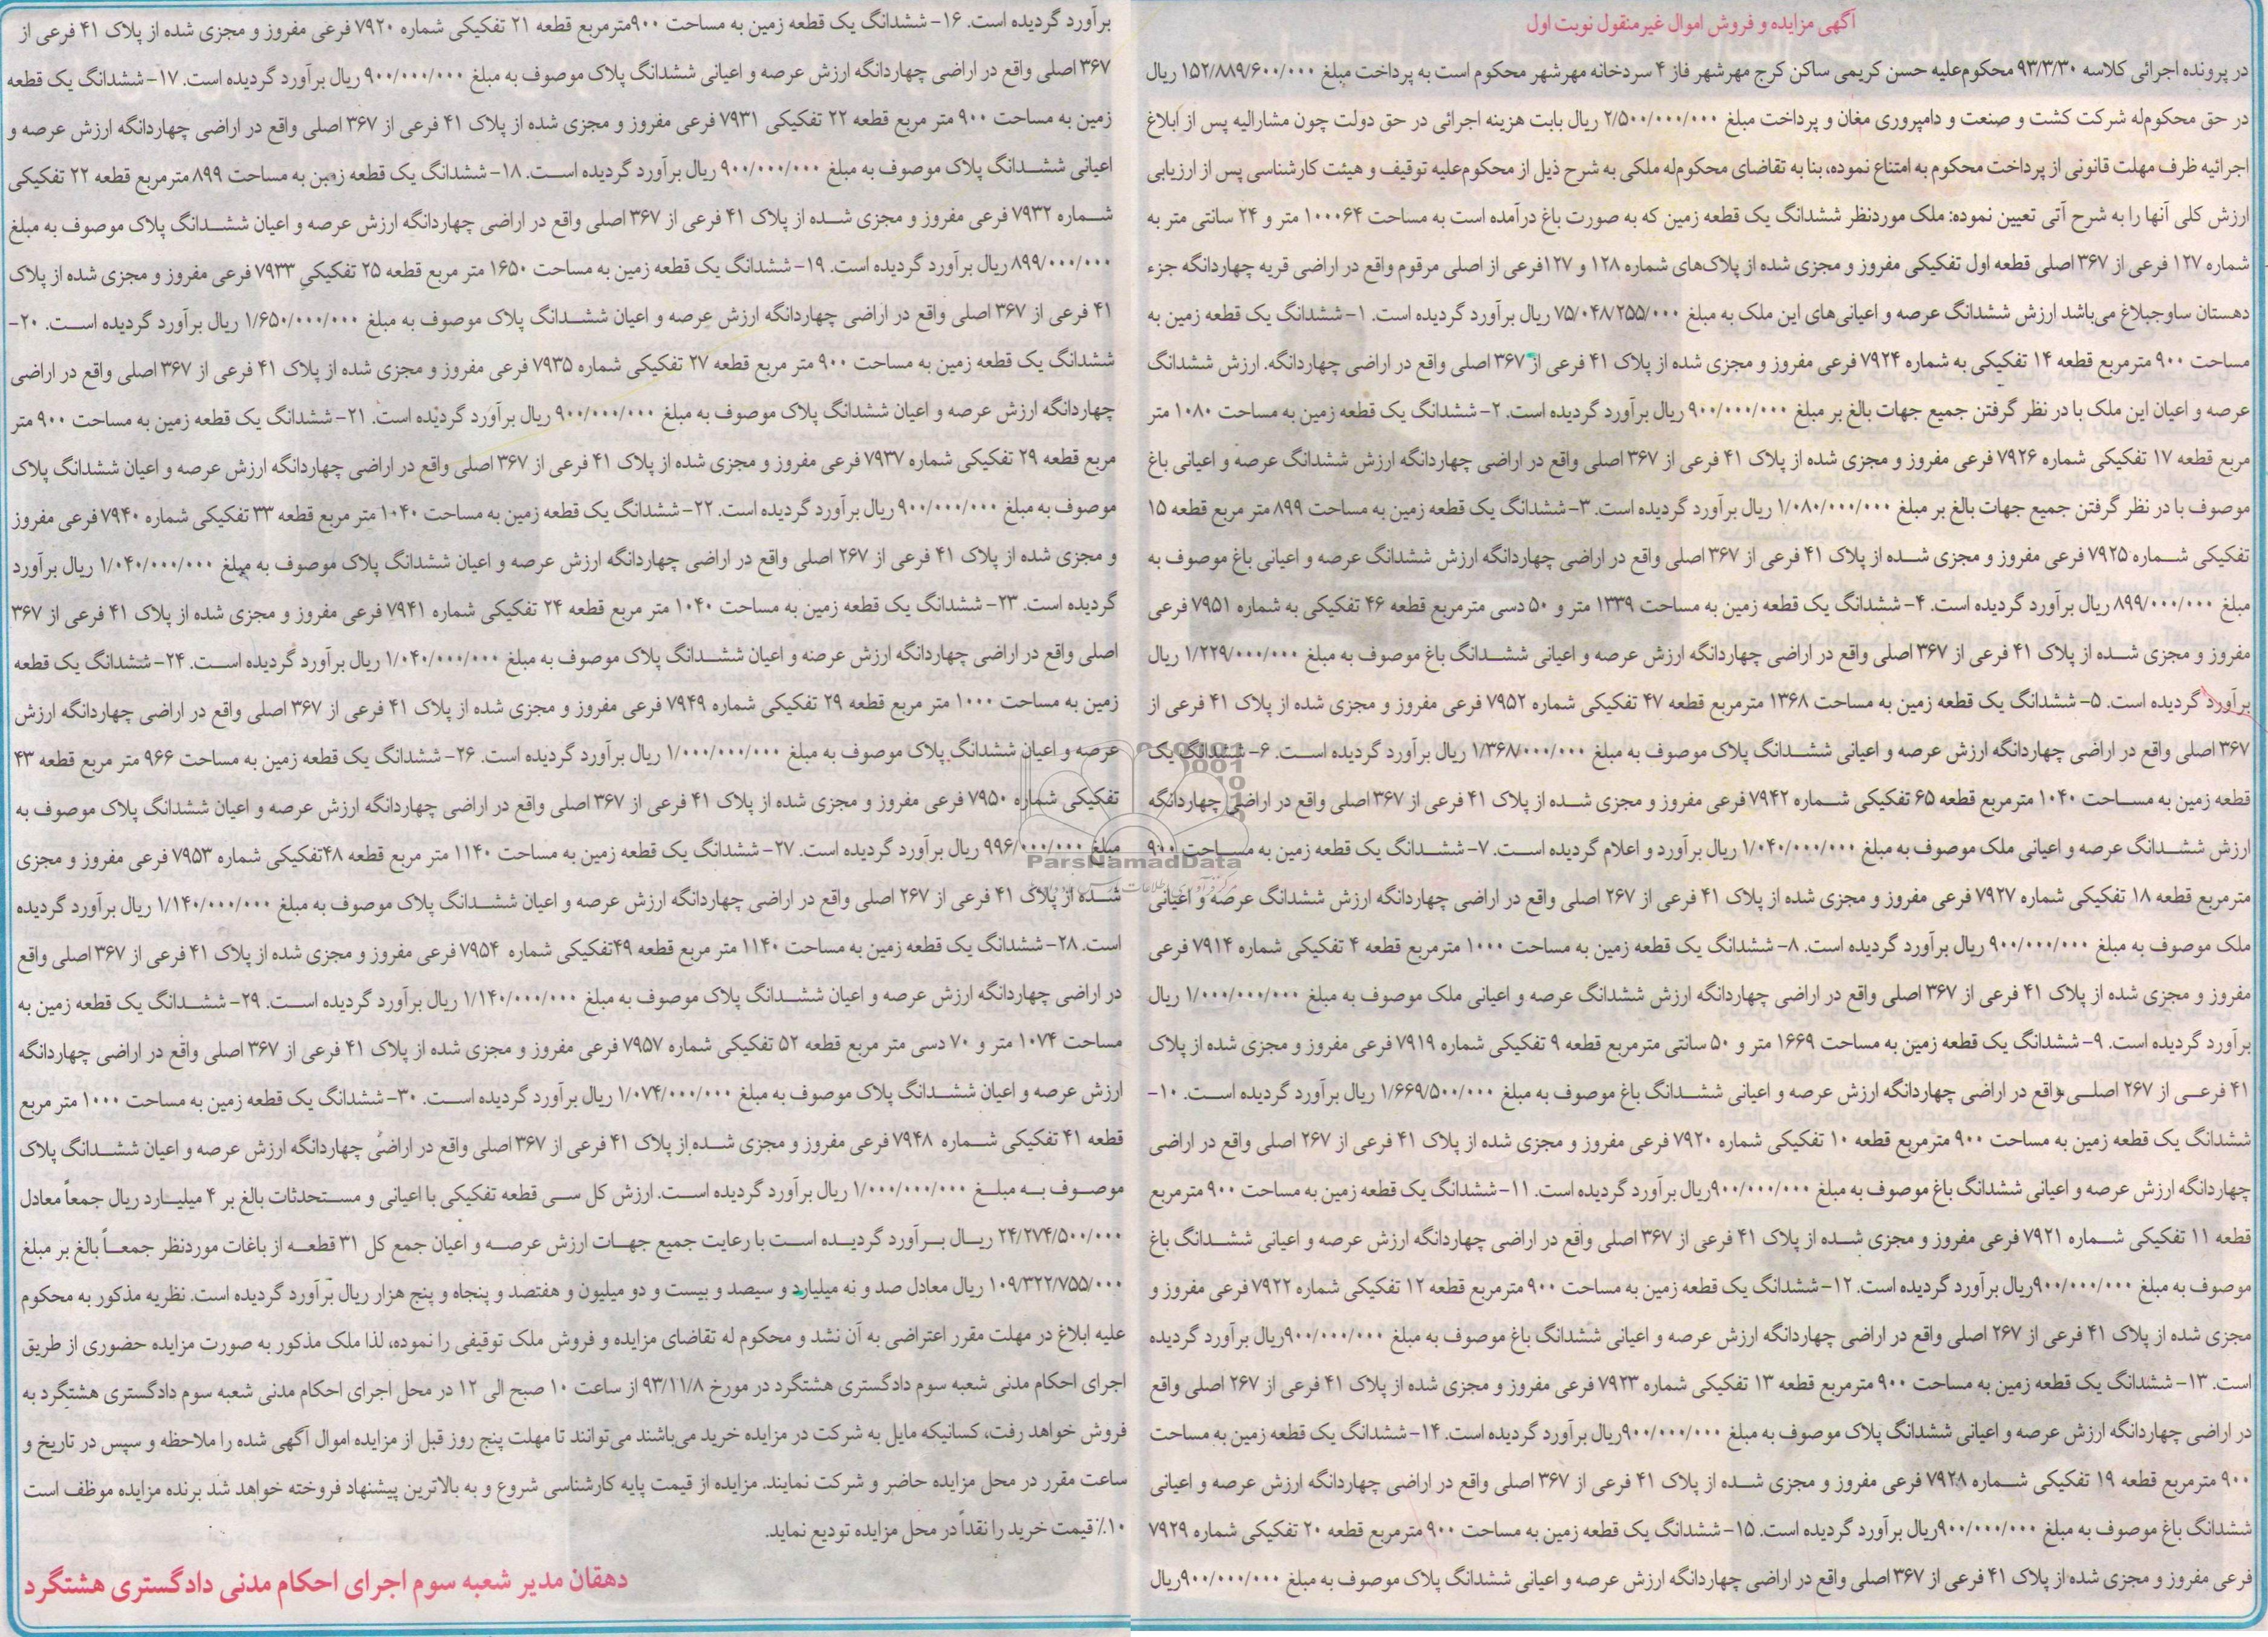 آگهی مزایده و فروش اموال غیرمنقول نوبت اول
در پرونده اجرائی کلاسه ۹۳/۳/۳۰ محکوم‌علیه حسن کریمی ساکن کرج مهرشهر فاز ۴ سردخانه مهرشهر محکوم است به پرداخت مبلغ ۱۵۲/۸۸۹/۶۰۰/۰۰۰ ریال
در حق محکوم‌له شرکت کشت و صنعت و دامپروری مغان و پرداخت مبلغ ۲/۵۰۰/۰۰۰/۰۰۰ ریال بابت هزینه اجرائی در حق دولت چون مشارالیه پس از ابلاغ
اجرائیه ظرف مهلت قانونی از پرداخت محکوم به امتناع نموده، بنا به تقاضای محکوم‌له ملکی به شرح ذیل از محکوم‌علیه توقیف و هیئت کارشناسی پس از ارزیابی
ارزش کلی آنها را به شرح آتی تعیین نموده: ملک موردنظر ششدانگ یک قطعه زمین که به صورت باغ درآمده است به مساحت ۱۰۰۰۶۴ متر و ۲۴ سانتی متر به
شماره ۱۲۷ فرعی از ۳۶۷ اصلی قطعه اول تفکیکی مفروز و مجزی شده از پلاک‌های شماره ۱۲۸ و ۱۲۷فرعی از اصلی مرقوم واقع در اراضی قریه چهاردانگه جزء
دهستان ساوجبلاغ می‌باشد ارزش ششدانگ عرصه و اعیانی‌های این ملک به مبلغ ۷۵/۰۴۸/۲۵۵/۰۰۰ ریال برآورد گردیده است. ۱- ششدانگ یک قطعه زمین به
مساحت ۹۰۰ مترمربع قطعه ۱۴ تفکیکی به شماره ۷۹۲۴ فرعی مفروز و مجزی شده از پلاک ۴۱ فرعی از ۳۶۷ اصلی واقع در اراضی چهاردانگه. ارزش ششدانگ
عرصه و اعیان این ملک با در نظر گرفتن جمیع جهات بالغ بر مبلغ ۹۰۰/۰۰۰/۰۰۰ ریال برآورد گردیده است. ۲- ششدانگ یک قطعه زمین به مساحت ۱۰۸۰ متر
مربع قطعه ۱۷ تفکیکی شماره ۷۹۲۶ فرعی مفروز و مجزی شده از پلاک ۴۱ فرعی از ۳۶۷ اصلی واقع در اراضی چهاردانگه ارزش ششدانگ عرصه و اعیانی باغ
موصوف با در نظر گرفتن جمیع جهات بالغ بر مبلغ ۱/۰۸۰/۰۰۰/۰۰۰ ریال برآورد گردیده است. ۳- ششدانگ یک قطعه زمین به مساحت ۸۹۹ متر مربع قطعه ۱۵
تفکیکی شماره ۷۹۲۵ فرعی مفروز و مجزی شده از پلاک ۴۱ فرعی از ۳۶۷ اصلی واقع در اراضی چهاردانگه ارزش ششدانگ عرصه و اعیانی باغ موصوف به
مبلغ ۸۹۹/۰۰۰/۰۰۰ ریال برآورد گردیده است. ۴- ششدانگ یک قطعه زمین به مساحت ۱۳۳۹ متر و ۵۰ دسی مترمربع قطعه ۴۶ تفکیکی به شماره ۷۹۵۱ فرعی
مفروز و مجزی شده از پلاک ۴۱ فرعی از ۳۶۷ اصلی واقع در اراضی چهاردانگه ارزش عرصه و اعیانی ششدانگ باغ موصوف به مبلغ ۱/۲۲۹/۰۰۰/۰۰۰ ریال
برآورد گردیده است. ۵- ششدانگ یک قطعه زمین به مساحت ۱۳۶۸ مترمربع قطعه ۴۷ تفکیکی شماره ۷۹۵۲ فرعی مفروز و مجزی شده از پلاک ۴۱ فرعی از
۳۶۷ اصلی واقع در اراضی چهاردانگه ارزش عرصه و اعیانی ششدانگ پلاک موصوف به مبلغ ۱/۳۶۸/۰۰۰/۰۰۰ ریال برآورد گردیده است. ۶- ششدانگ یک
قطعه زمین به مساحت ۱۰۴۰ مترمربع قطعه ۶۵ تفکیکی شماره ۷۹۴۲ فرعی مفروز و مجزی شده از پلاک ۴۱ فرعی از ۳۶۷ اصلی واقع در اراضی چهاردانگه
ارزش ششدانگ عرصه و اعیانی ملک موصوف به مبلغ ۱/۰۴۰/۰۰۰/۰۰۰ ریال برآورد و اعلام گردیده است. ۷- ششدانگ یک قطعه زمین به مساحت ۹۰۰
مترمربع قطعه ۱۸ تفکیکی شماره ۷۹۲۷ فرعی مفروز و مجزی شده از پلاک ۴۱ فرعی از ۲۶۷ اصلی واقع در اراضی چهاردانگه ارزش ششدانگ عرصه و اعیانی
ملک موصوف به مبلغ ۹۰۰/۰۰۰/۰۰۰ ریال برآورد گردیده است. ۸- ششدانگ یک قطعه زمین به مساحت ۱۰۰۰ مترمربع قطعه ۴ تفکیکی شماره ۷۹۱۴ فرعی
مفروز و مجزی شده از پلاک ۴۱ فرعی از ۳۶۷ اصلی واقع در اراضی چهاردانگه ارزش ششدانگ عرصه و اعیانی ملک موصوف به مبلغ ۱/۰۰۰/۰۰۰/۰۰۰ ریال
برآورد گردیده است. ۹- ششدانگ یک قطعه زمین به مساحت ۱۶۶۹ متر و ۵۰ سانتی مترمربع قطعه ۹ تفکیکی شماره ۷۹۱۹ فرعی مفروز و مجزی شده از پلاک
۴۱ فرعی از ۲۶۷ اصلی واقع در اراضی چهاردانگه ارزش عرصه و اعیانی ششدانگ باغ موصوف به مبلغ ۱/۶۶۹/۵۰۰/۰۰۰ ریال برآورد گردیده است. ۱۰-
ششدانگ یک قطعه زمین به مساحت ۹۰۰ مترمربع قطعه ۱۰ تفکیکی شماره ۷۹۲۰ فرعی مفروز و مجزی شده از پلاک ۴۱ فرعی از ۲۶۷ اصلی واقع در اراضی
چهاردانگه ارزش عرصه و اعیانی ششدانگ باغ موصوف به مبلغ ۹۰۰/۰۰۰/۰۰۰ریال برآورد گردیده است. ۱۱- ششدانگ یک قطعه زمین به مساحت ۹۰۰ مترمربع
قطعه ۱۱ تفکیکی شماره ۷۹۲۱ فرعی مفروز و مجزی شده از پلاک ۴۱ فرعی از ۳۶۷ اصلی واقع در اراضی چهاردانگه ارزش عرصه و اعیانی ششدانگ باغ
موصوف به مبلغ ۹۰۰/۰۰۰/۰۰۰ریال برآورد گردیده است. ۱۲- ششدانگ یک قطعه زمین به مساحت ۹۰۰ مترمربع قطعه ۱۲ تفکیکی شماره ۷۹۲۲ فرعی مفروز و
مجزی شده از پلاک ۴۱ فرعی از ۲۶۷ اصلی واقع در اراضی چهاردانگه ارزش عرصه و اعیانی ششدانگ باغ موصوف به مبلغ ۹۰۰/۰۰۰/۰۰۰ریال برآورد گردیده
است. ۱۳- ششدانگ یک قطعه زمین به مساحت ۹۰۰ مترمربع قطعه ۱۳ تفکیکی شماره ۷۹۲۳ فرعی مفروز و مجزی شده از پلاک ۴۱ فرعی از ۲۶۷ اصلی واقع
در اراضی چهاردانگه ارزش عرصه و اعیانی ششدانگ پلاک موصوف به مبلغ ۹۰۰/۰۰۰/۰۰۰ریال برآورد گردیده است. ۱۴- ششدانگ یک قطعه زمین به مساحت
۹۰۰ مترمربع قطعه ۱۹ تفکیکی شماره ۷۹۲۸ فرعی مفروز و مجزی شده از پلاک ۴۱ فرعی از ۳۶۷ اصلی واقع در اراضی چهاردانگه ارزش عرصه و اعیانی
ششدانگ باغ موصوف به مبلغ ۹۰۰/۰۰۰/۰۰۰ریال برآورد گردیده است. ۱۵- ششدانگ یک قطعه زمین به مساحت ۹۰۰ مترمربع قطعه ۲۰ تفکیکی شماره ۷۹۲۹
فرعی مفروز و مجزی شده از پلاک ۴۱ فرعی از ۳۶۷ اصلی واقع در اراضی چهاردانگه ارزش عرصه و اعیانی ششدانگ پلاک موصوف به مبلغ ۹۰۰/۰۰۰/۰۰۰ریال
برآورد گردیده است. ۱۶- ششدانگ یک قطعه زمین به مساحت ۹۰۰مترمربع قطعه ۲۱ تفکیکی شماره ۷۹۲۰ فرعی مفروز و مجزی شده از پلاک ۴۱ فرعی از
۳۶۷ اصلی واقع در اراضی چهاردانگه ارزش عرصه و اعیانی ششدانگ پلاک موصوف به مبلغ ۹۰۰/۰۰۰/۰۰۰ ریال برآورد گردیده است. ۱۷- ششدانگ یک قطعه
زمین به مساحت ۹۰۰ متر مربع قطعه ۲۲ تفکیکی ۷۹۳۱ فرعی مفروز و مجزی شده از پلاک ۴۱ فرعی از ۳۶۷ اصلی واقع در اراضی چهاردانگه ارزش عرصه و
اعیانی ششدانگ پلاک موصوف به مبلغ ۹۰۰/۰۰۰/۰۰۰ ریال برآورد گردیده است. ۱۸- ششدانگ یک قطعه زمین به مساحت ۸۹۹ مترمربع قطعه ۲۲ تفکیکی
شماره ۷۹۳۲ فرعی مفروز و مجزی شده از پلاک ۴۱ فرعی از ۳۶۷ اصلی واقع در اراضی چهاردانگه ارزش عرصه و اعیان ششدانگ پلاک موصوف به مبلغ
۸۹۹/۰۰۰/۰۰۰ ریال برآورد گردیده است. ۱۹- ششدانگ یک قطعه زمین به مساحت ۱۶۵۰ متر مربع قطعه ۲۵ تفکیکی ۷۹۳۳ فرعی مفروز و مجزی شده از پلاک
۴۱ فرعی از ۳۶۷ اصلی واقع در اراضی چهاردانگه ارزش عرصه و اعیان ششدانگ پلاک موصوف به مبلغ ۱/۶۵۰/۰۰۰/۰۰۰ ریال برآورد گردیده است. ۲۰-
ششدانگ یک قطعه زمین به مساحت ۹۰۰ متر مربع قطعه ۲۷ تفکیکی شماره ۷۹۳۵ فرعی مفروز و مجزی شده از پلاک ۴۱ فرعی از ۳۶۷ اصلی واقع در اراضی
چهاردانگه ارزش عرصه و اعیان ششدانگ پلاک موصوف به مبلغ ۹۰۰/۰۰۰/۰۰۰ ریال برآورد گردیده است. ۲۱- ششدانگ یک قطعه زمین به مساحت ۹۰۰ متر
مربع قطعه ۲۹ تفکیکی شماره ۷۹۳۷ فرعی مفروز و مجزی شده از پلاک ۴۱ فرعی از ۳۶۷ اصلی واقع در اراضی چهاردانگه ارزش عرصه و اعیان ششدانگ پلاک
موصوف به مبلغ ۹۰۰/۰۰۰/۰۰۰ ریال برآورد گردیده است. ۲۲- ششدانگ یک قطعه زمین به مساحت ۱۰۴۰ متر مربع قطعه ۳۳ تفکیکی شماره ۷۹۴۰ فرعی مفروز
و مجزی شده از پلاک ۴۱ فرعی از ۲۶۷ اصلی واقع در اراضی چهاردانگه ارزش عرصه و اعیان ششدانگ پلاک موصوف به مبلغ ۱/۰۴۰/۰۰۰/۰۰۰ ریال برآورد
گردیده است. ۲۳- ششدانگ یک قطعه زمین به مساحت ۱۰۴۰ متر مربع قطعه ۲۴ تفکیکی شماره ۷۹۴۱ فرعی مفروز و مجزی شده از پلاک ۴۱ فرعی از ۳۶۷
اصلی واقع در اراضی چهاردانگه ارزش عرصه و اعیان ششدانگ پلاک موصوف به مبلغ ۱/۰۴۰/۰۰۰/۰۰۰ ریال برآورد گردیده است. ۲۴- ششدانگ یک قطعه
زمین به مساحت ۱۰۰۰ متر مربع قطعه ۲۹ تفکیکی شماره ۷۹۴۹ فرعی مفروز و مجزی شده از پلاک ۴۱ فرعی از ۳۶۷ اصلی واقع در اراضی چهاردانگه ارزش
عرصه و اعیان ششدانگ پلاک موصوف به مبلغ ۱/۰۰۰/۰۰۰/۰۰۰ ریال برآورد گردیده است. ۲۶- ششدانگ یک قطعه زمین به مساحت ۹۶۶ متر مربع قطعه ۴۳
تفکیکی شماره ۷۹۵۰ فرعی مفروز و مجزی شده از پلاک ۴۱ فرعی از ۳۶۷ اصلی واقع در اراضی چهاردانگه ارزش عرصه و اعیان ششدانگ پلاک موصوف به
مبلغ ۹۹۶/۰۰۰/۰۰۰ ریال برآورد گردیده است. ۲۷- ششدانگ یک قطعه زمین به مساحت ۱۱۴۰ متر مربع قطعه ۴۸تفکیکی شماره ۷۹۵۳ فرعی مفروز و مجزی
شده از پلاک ۴۱ فرعی از ۲۶۷ اصلی واقع در اراضی چهاردانگه ارزش عرصه و اعیان ششدانگ پلاک موصوف به مبلغ ۱/۱۴۰/۰۰۰/۰۰۰ ریال برآورد گردیده
است. ۲۸- ششدانگ یک قطعه زمین به مساحت ۱۱۴۰ متر مربع قطعه ۴۹تفکیکی شماره ۷۹۵۴ فرعی مفروز و مجزی شده از پلاک ۴۱ فرعی از ۳۶۷ اصلی واقع
در اراضی چهاردانگه ارزش عرصه و اعیان ششدانگ پلاک موصوف به مبلغ ۱/۱۴۰/۰۰۰/۰۰۰ ریال برآورد گردیده است. ۲۹- ششدانگ یک قطعه زمین به
مساحت ۱۰۷۴ متر و ۷۰ دسی متر مربع قطعه ۵۲ تفکیکی شماره ۷۹۵۷ فرعی مفروز و مجزی شده از پلاک ۴۱ فرعی از ۳۶۷ اصلی واقع در اراضی چهاردانگه
ارزش عرصه و اعیان ششدانگ پلاک موصوف به مبلغ ۱/۰۷۴/۰۰۰/۰۰۰ ریال برآورد گردیده است. ۳۰- ششدانگ یک قطعه زمین به مساحت ۱۰۰۰ متر مربع
قطعه ۴۱ تفکیکی شماره ۷۹۴۸ فرعی مفروز و مجزی شده از پلاک ۴۱ فرعی از ۳۶۷ اصلی واقع در اراضی چهاردانگه ارزش عرصه و اعیان ششدانگ پلاک
موصوف به مبلغ ۱/۰۰۰/۰۰۰/۰۰۰ ریال برآورد گردیده است. ارزش کل سی قطعه تفکیکی با اعیانی و مستحدثات بالغ بر ۴ میلیارد ریال جمعاً معادل
۲۴/۲۷۴/۵۰۰/۰۰۰ ریال برآورد گردیده است با رعایت جمیع جهات ارزش عرصه و اعیان جمع کل ۳۱ قطعه از باغات موردنظر جمعاً بالغ بر مبلغ
۱۰۹/۳۲۲/۷۵۵/۰۰۰ ریال معادل صد و نه میلیارد و سیصد و بیست و دو میلیون و هفتصد و پنجاه و پنج هزار ریال برآورد گردیده است. نظریه مذکور به محکوم
علیه ابلاغ در مهلت مقرر اعتراضی به آن نشد و محکوم له تقاضای مزایده و فروش ملک توقیفی را نموده، لذا ملک مذکور به صورت مزایده حضوری از طریق
اجرای احکام مدنی شعبه سوم دادگستری هشتگرد در مورخ ۹۳/۱۱/۸ از ساعت ۱۰ صبح الی ۱۲ در محل اجرای احکام مدنی شعبه سوم دادگستری هشتگرد به
فروش خواهد رفت، کسانیکه مایل به شرکت در مزایده خرید می‌باشند می‌توانند تا مهلت پنج روز قبل از مزایده اموال آگهی شده را ملاحظه و سپس در تاریخ و
ساعت مقرر در محل مزایده حاضر و شرکت نمایند. مزایده از قیمت پایه کارشناسی شروع و به بالاترین پیشنهاد فروخته خواهد شد برنده مزایده موظف است
۱۰٪ قیمت خرید را نقداً در محل مزایده تودیع نماید.
دهقان مدیر شعبه سوم اجرای احکام مدنی دادگستری هشتگرد
ParsNamadData